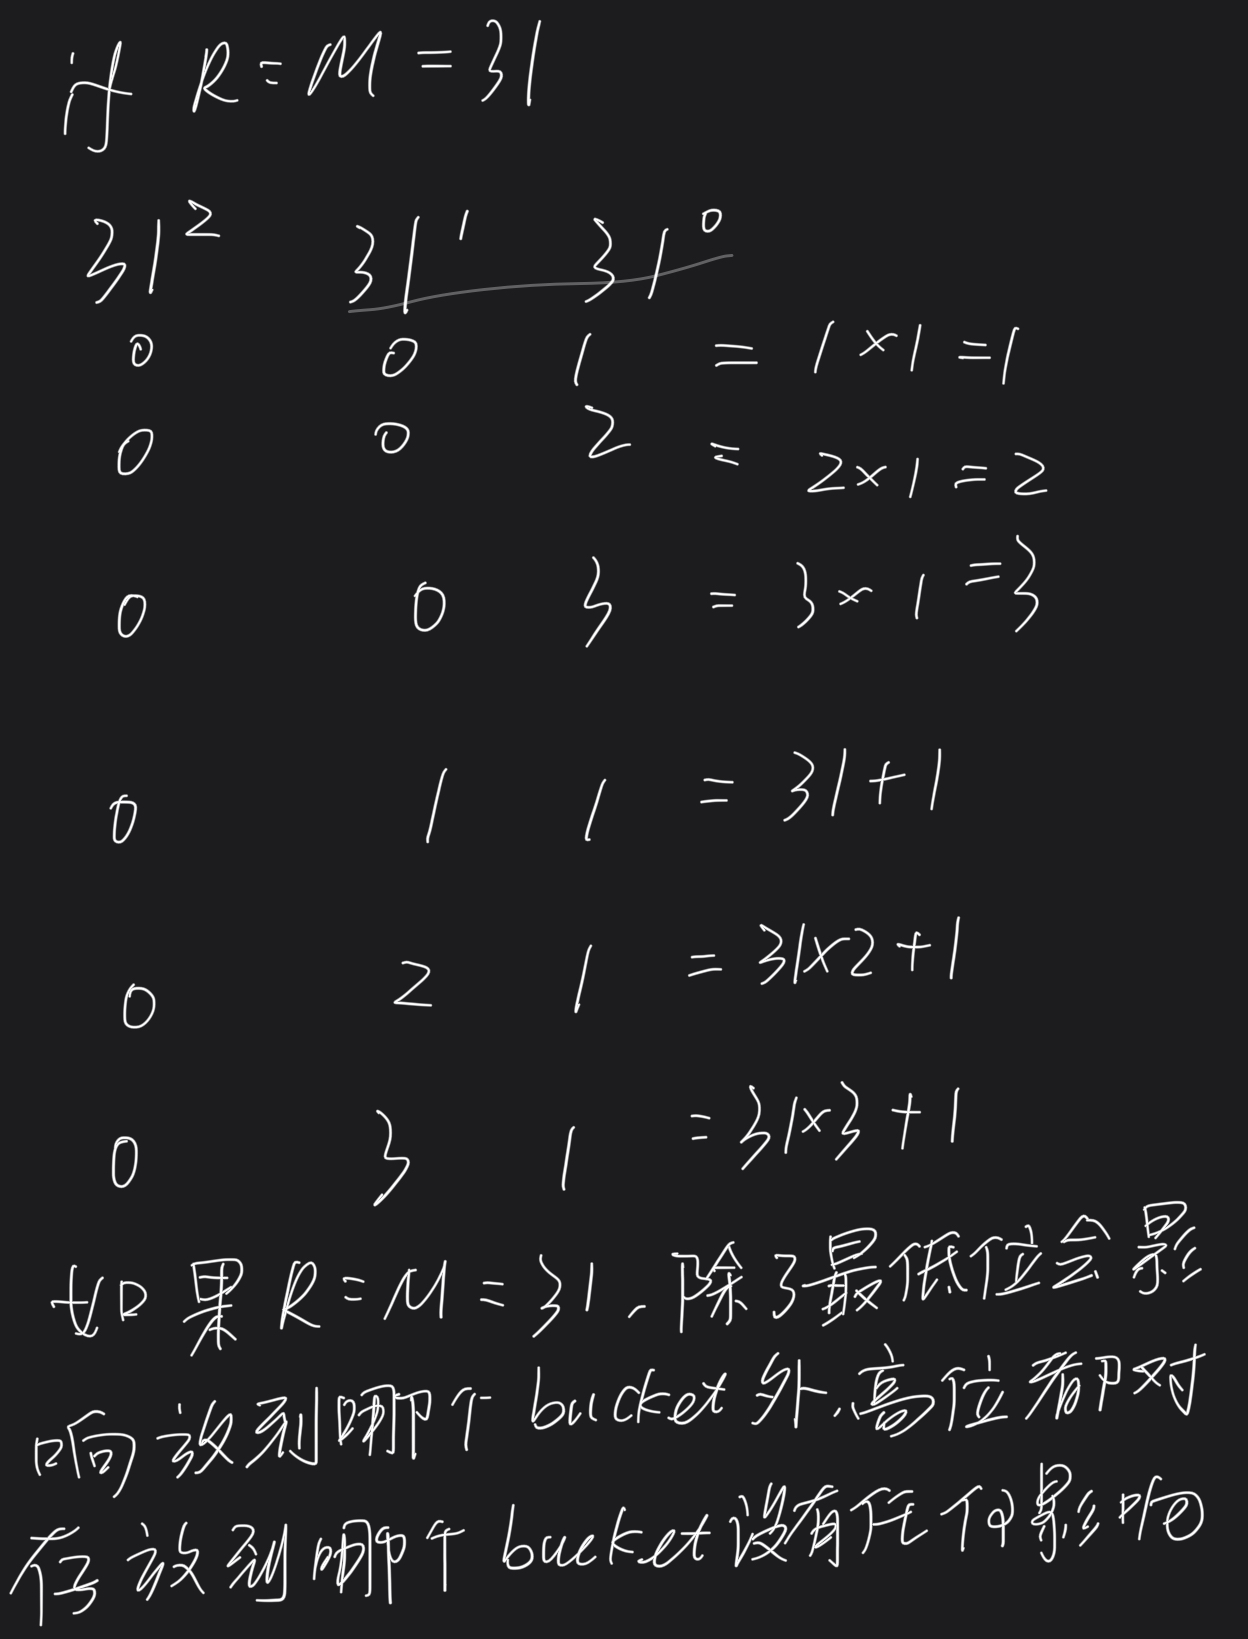 if R = M = 31
31² 31¹ 31⁰
0 0 1 = 1 × 1 = 1
0 0 2 = 2 × 1 = 2
0 0 3 = 3 × 1 = 3
0 1 1 = 31 + 1
0 2 1 = 31×2 + 1
0 3 1 = 31×3 + 1
如果 R = M = 31、除了最低位会影
响放到哪个 bucket 外,高位都对
存放到哪个 bucket 没有任何影响